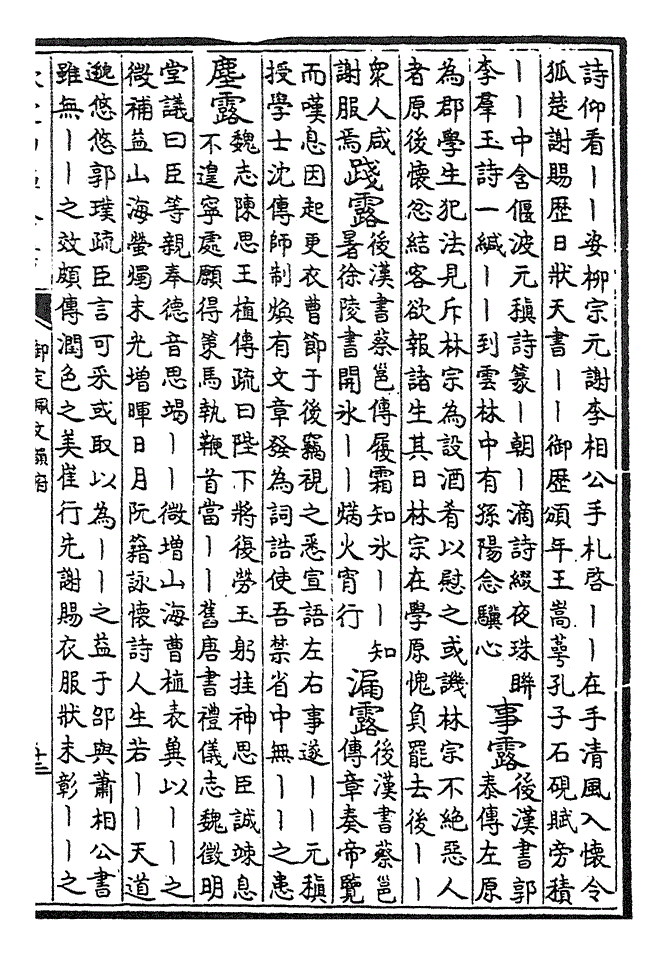 詩仰看丨丨姿柳宗元謝李相公手札啓丨丨在手清風入懷令
狐楚謝賜歴日狀天書丨丨御歴頒年王嵩蕚孔子石硯賦旁積
丨丨中含偃波元稹詩篆丨朝丨滴詩綴夜珠聯
李羣玉詩一緘丨丨到雲林中有孫陽念驥心
事露
後漢書郭
泰傳左原
為郡學生犯法見斥林宗為設酒肴以慰之或譏林宗不絶惡人
者原後懷忿結客欲報諸生其日林宗在學原愧負罷去後丨丨
衆人咸
謝服焉
踐露
後漢書蔡邕傳履霜知氷丨丨知
暑徐陵書開氷丨丨熵火宵行
漏露
後漢書蔡邕
傳章奏帝覽
而嘆息因起更衣曹節于後竊視之悉宣語左右事遂丨丨元稹
授學士沈傳師制煥有文章發為詞誥使吾禁省中無丨丨之患
塵露
魏志陳思王植傳疏曰陛下將復勞玉躬挂神思臣誠竦息
不遑寧處願得策馬執鞭首當丨丨舊唐書禮儀志魏徵明
堂議曰臣等親奉德音思竭丨丨微增山海曹植表兾以丨丨之
微補益山海螢燭末光增暉日月阮籍詠懷詩人生若丨丨天道
邈悠悠郭璞疏臣言可采或取以為丨丨之益于邵與蕭相公書
雖無丨丨之效頗傳潤色之美崔行先謝賜衣服狀未彰丨丨之
御定佩文韻府